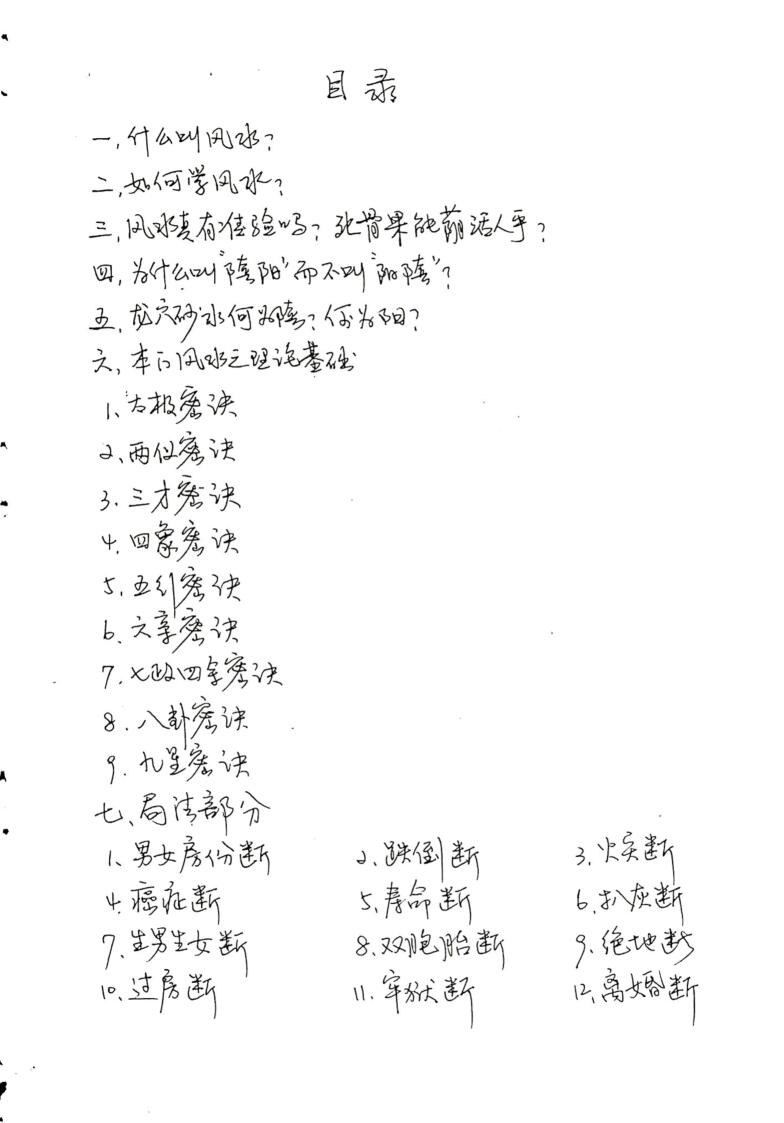 目录
一、什么叫风水?
二、如何学风水?
三、风水真有准验吗?死骨果能荫活人乎?
四、为什么叫“陰阳”而不叫“阳陰”?
五、龙穴砂水何为陰?何为阳?
六、本门风水之理论基础
1、太极密诀
2、两仪密诀
3、三才密诀
4、四象密诀
5、五行密诀
6、六 密诀
7、七政四余密诀
8、八卦密诀
9、九星密诀
七、局法部分
1、男女房份断 2、跌倒断 3、火灾断
4、癌症断 5、寿命断 6、扒灰断
7、生男生女断 8、双胞胎断 9、绝地断
10、过房断 11、牢狱断 12、离婚断